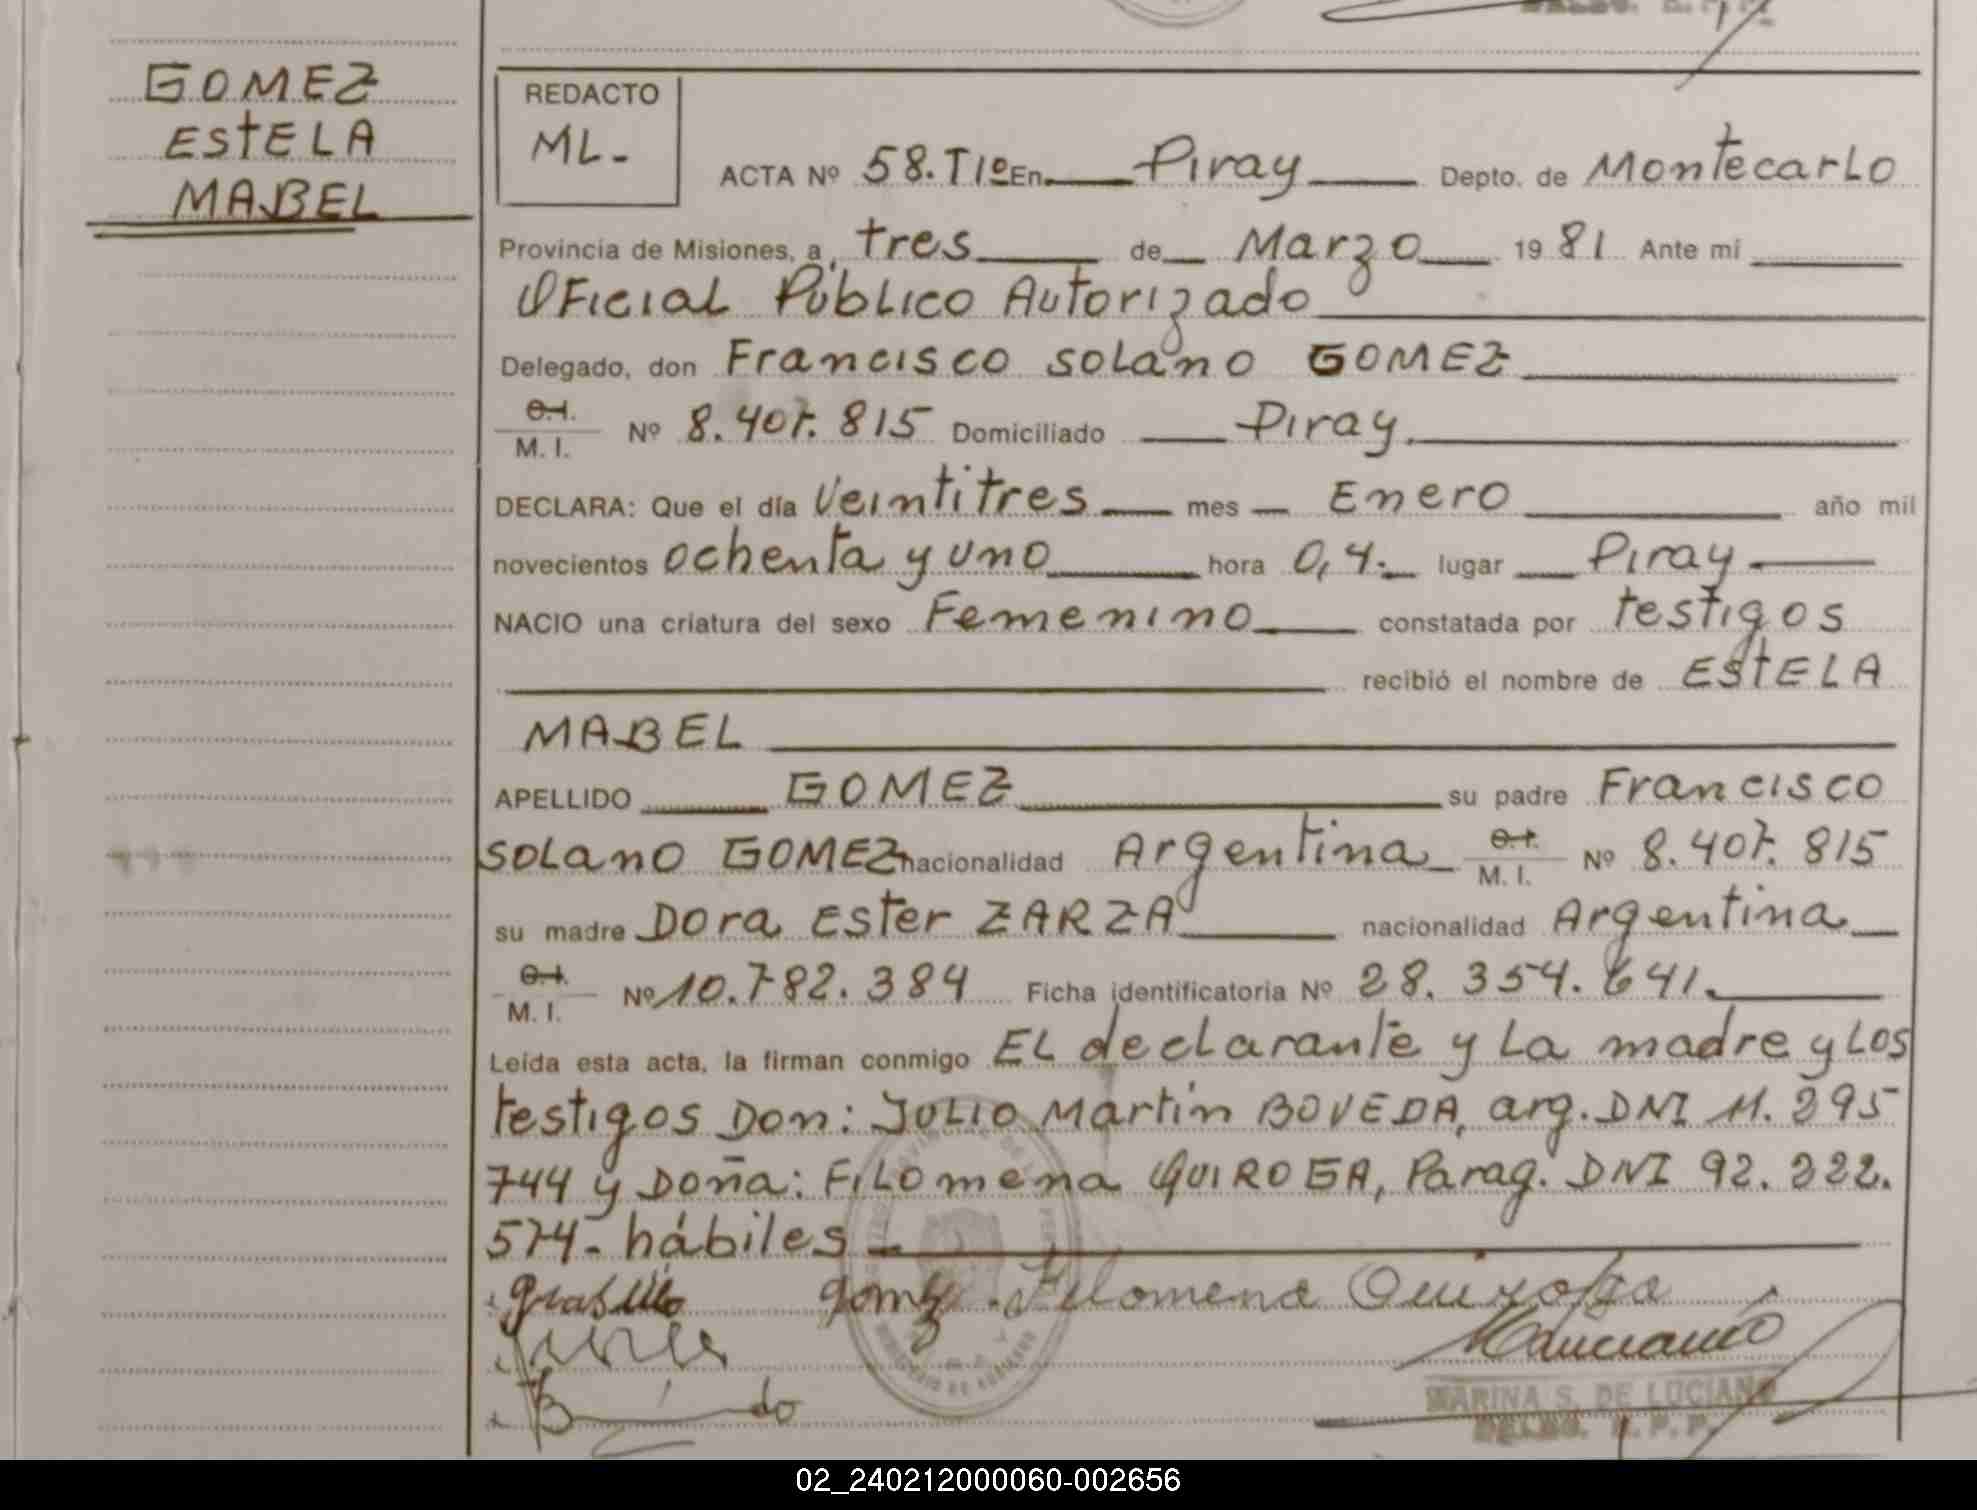 GOMEZ
ESTELA
MABEL
REDACTO
ML-
ACTA Nº 58. TIº En Piray Depto. de Montecarlo
Provincia de Misiones, a tres de Marzo 19 81 Ante mí
Oficial Público Autorizado
Delegado, don Francisco Solano GOMEZ
C.I. M. I. Nº 8.407.815 Domiciliado Piray.
DECLARA: Que el día Veintitres mes Enero año mil
novecientos ochenta y uno hora 0,4. lugar Piray
NACIO una criatura del sexo Femenino constatada por testigos
recibió el nombre de ESTELA
MABEL
APELLIDO GOMEZ su padre Francisco
Solano GOMEZ nacionalidad Argentina C.I. M. I. Nº 8.407.815
su madre Dora Ester ZARZA nacionalidad Argentina
C.I. M. I. Nº 10.782.384 Ficha identificatoria Nº 28.354.641.
Leída esta acta, la firman conmigo El declarante y la madre y los
testigos Don: Julio Martín BOVEDA, arg. DNI 11.295
744 y Doña: Filomena QUIROGA, Parag. DNI 92.222.
574- hábiles
gomez Filomena Quiroga
MARINA S. DE LUCIANO
DELEG. R.P.P.
02_240212000060-002656